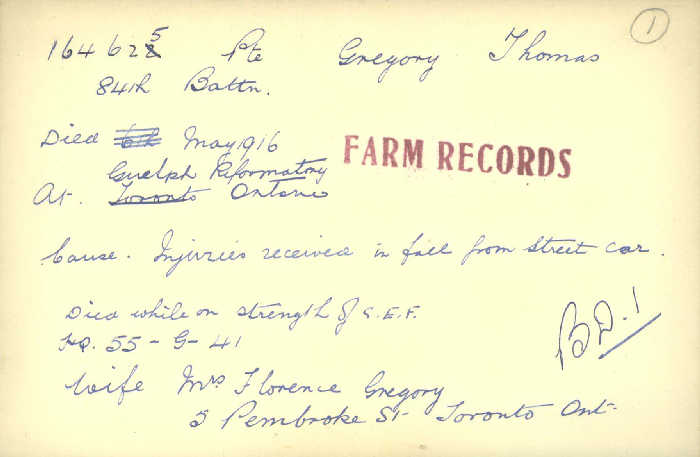 1
164625 Pte Gregory Thomas
84th Battn.
Died 6th May 1916
FARM RECORDS
Guelph Reformatory
At. Toronto Ontario
Cause. Injuries received in fall from street car.
Died while on strength of C.E.F.
HQ. 55-G-41
B.D.1
Wife Mrs Florence Gregory
5 Pembroke St- Toronto Ont-